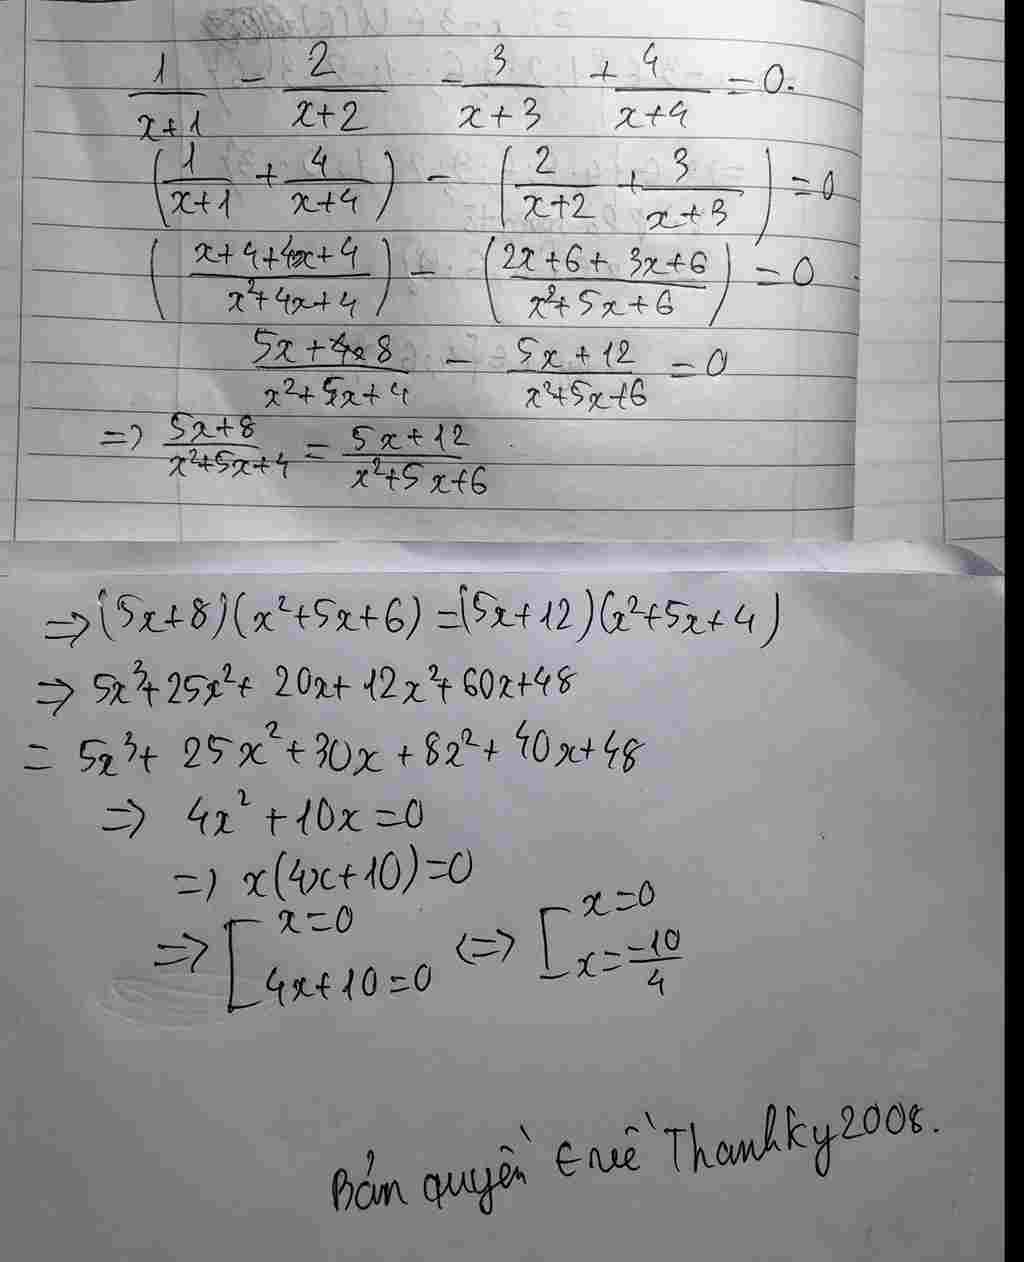 1/(x+1) - 2/(x+2) - 3/(x+3) + 4/(x+4) = 0.
(1/(x+1) + 4/(x+4)) - (2/(x+2) + 3/(x+3)) = 0
((x+4+4x+4)/(x²+4x+4)) - ((2x+6+3x+6)/(x²+5x+6)) = 0
(5x+8)/(x²+5x+4) - (5x+12)/(x²+5x+6) = 0
=> (5x+8)/(x²+5x+4) = (5x+12)/(x²+5x+6)
=> (5x+8)(x²+5x+6) = (5x+12)(x²+5x+4)
=> 5x³+25x²+20x+12x²+60x+48
= 5x³+25x²+30x+8x²+40x+48
=> 4x²+10x=0
=> x(4x+10)=0
=> [x=0 <=> [x=0
4x+10=0 x=-10/4
Bản quyền Thanhky2008.